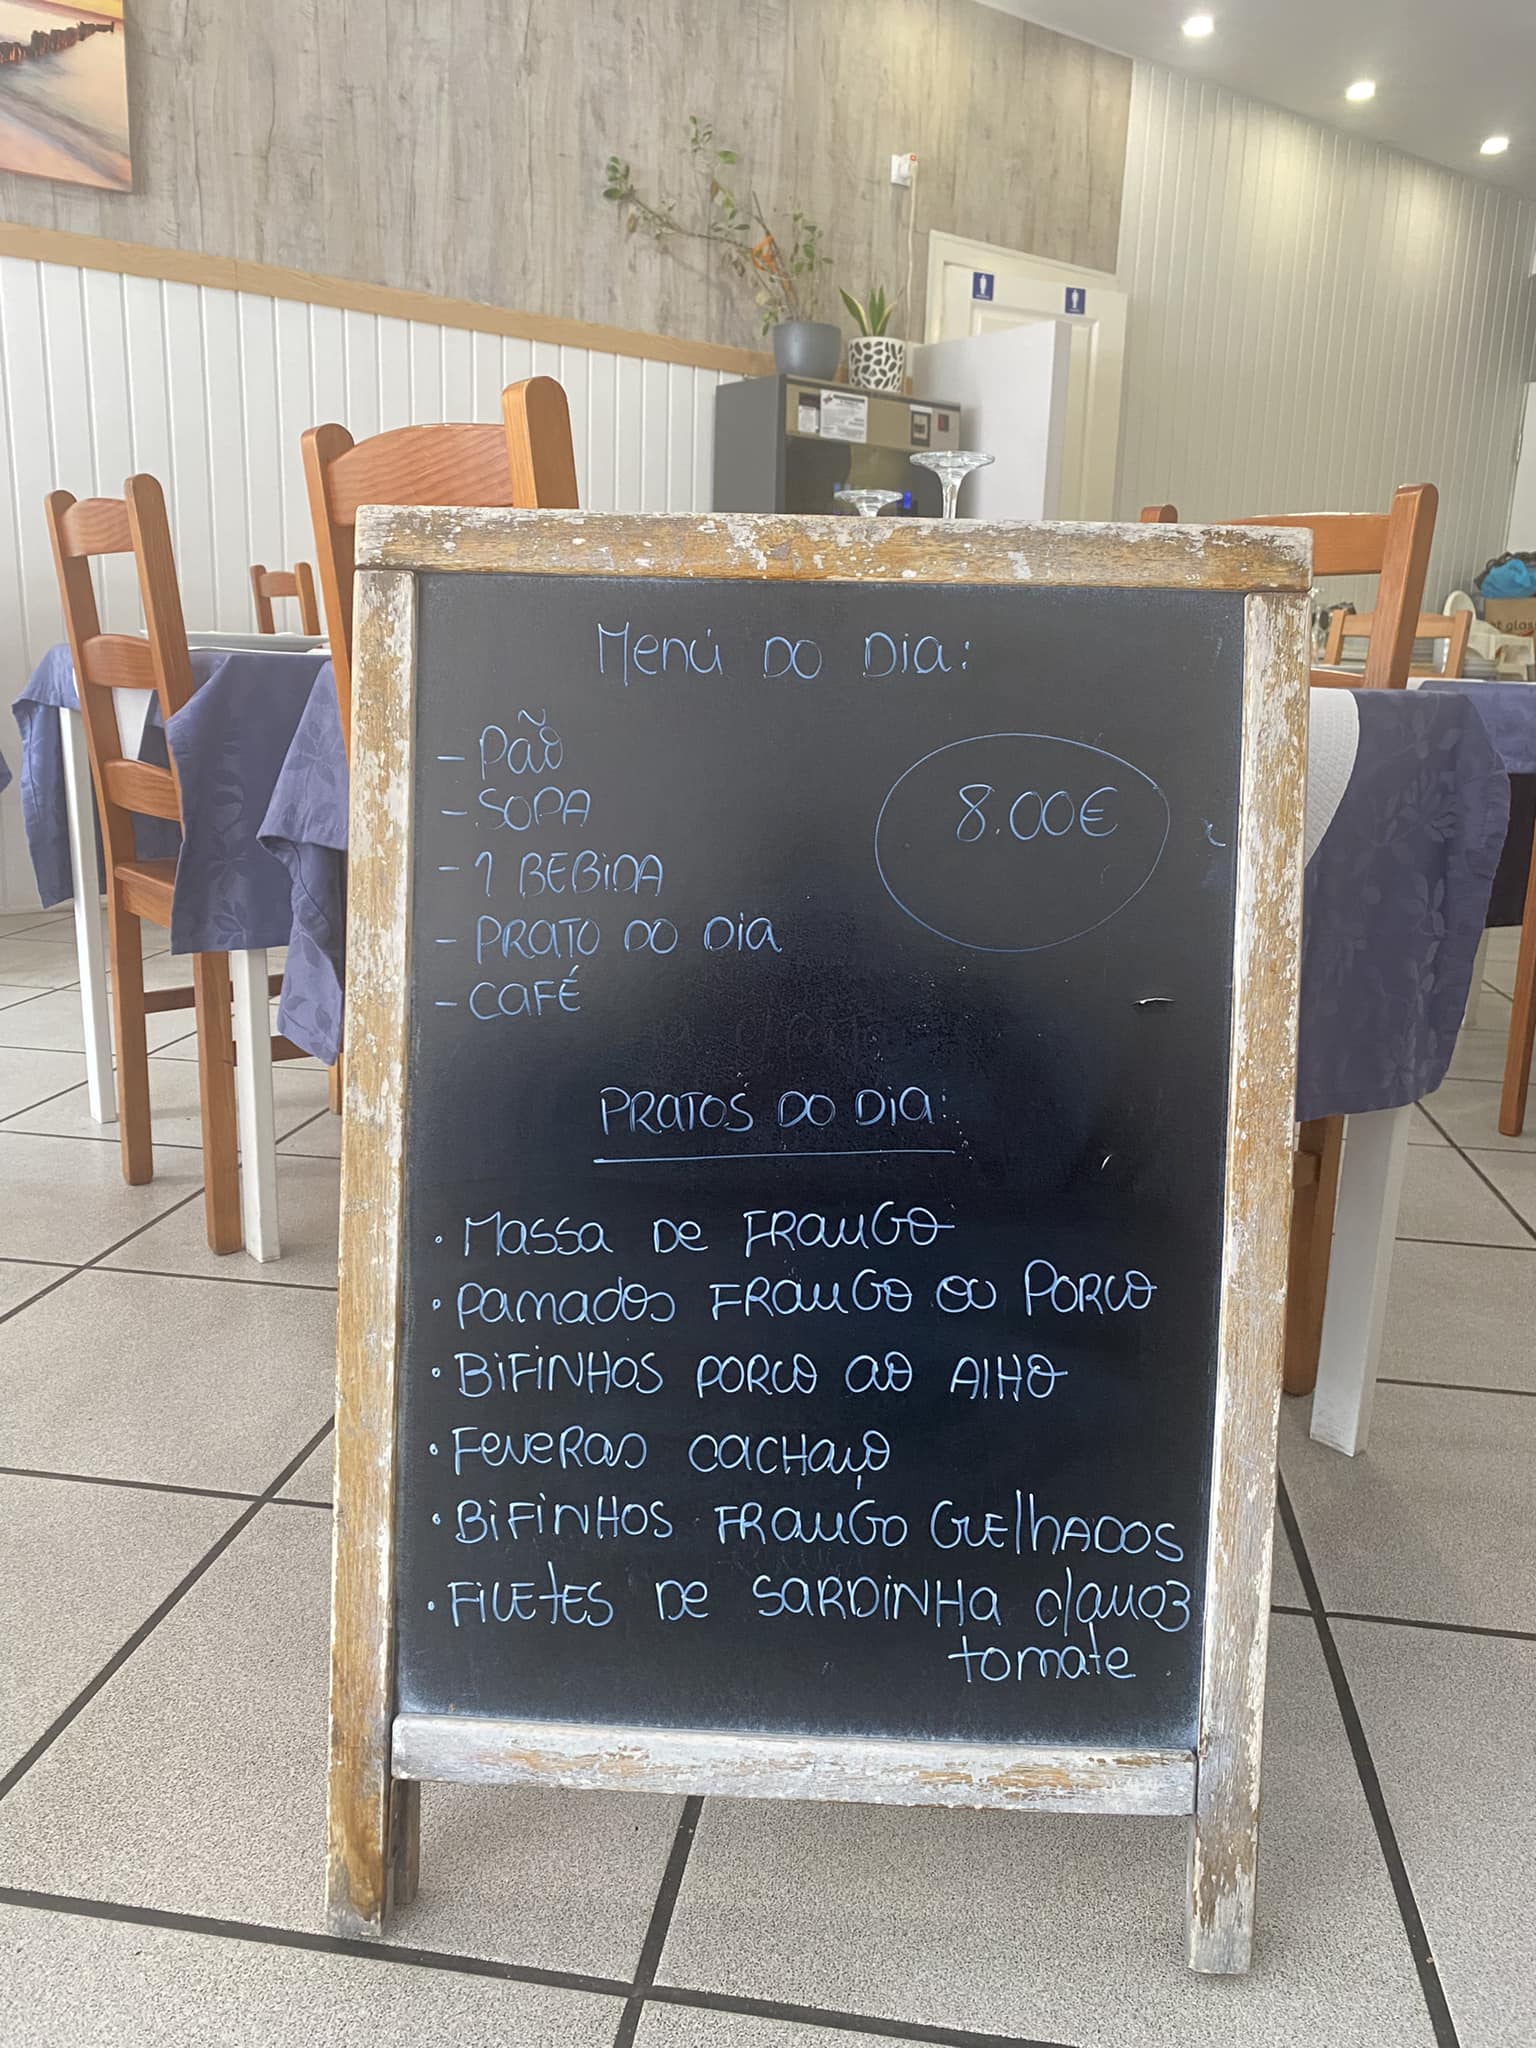 Menú do Dia:
- Pão
- SOPA
8.00€
- 1 BEBIDA
- PRATO DO DIA
- CAFÉ
PRATOS DO DIA:
• Massa de FRANGO
• Panados FRANGO OU PORCO
• BIFINHOS PORCO AO ALHO
• FEVERAS CACHAÇO
• BIFINHOS FRANGO GRELHADOS
• FILETES DE SARDINHA c/arroz
tomate